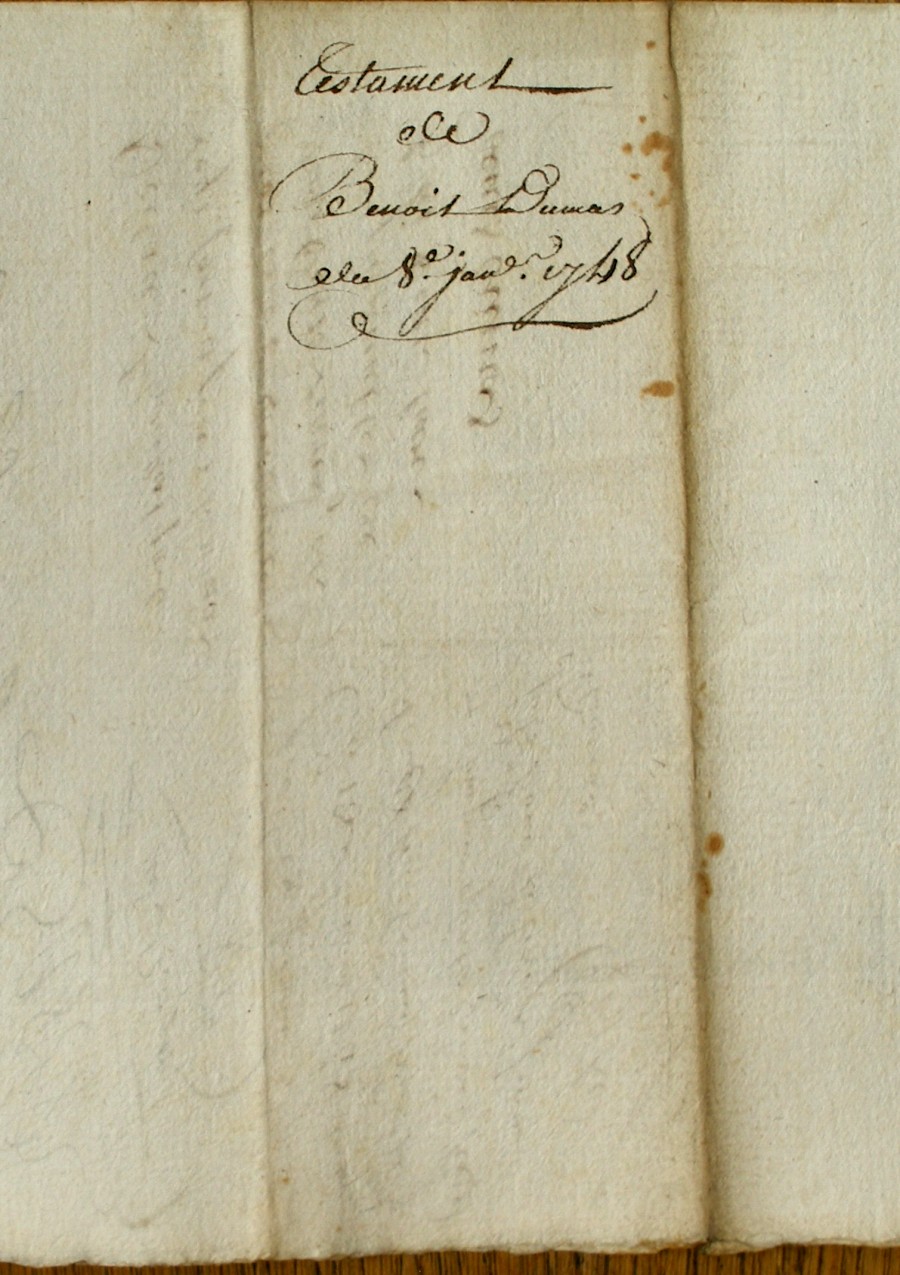 Testament
de
Benoit Dumas
du 8e. janvr. 1748